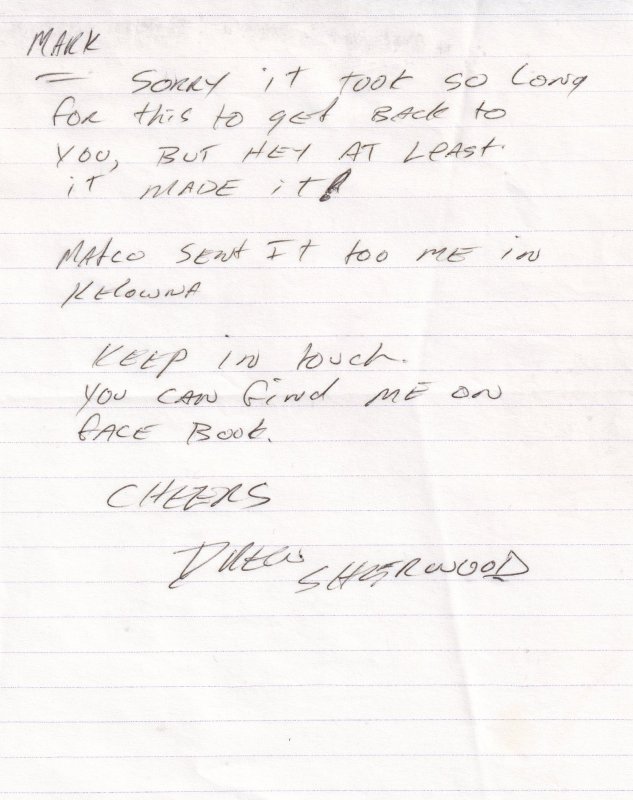 MARK
= SORRY it took so long
for this to get BACK to
YOU, BUT HEY AT Least.
it MADE it!
MATCO SENT IT too ME in
KELOWNA
KEEP in touch.
YOU CAN find ME ON
fACE BOOK.
CHEERS
DREW SHERWOOD